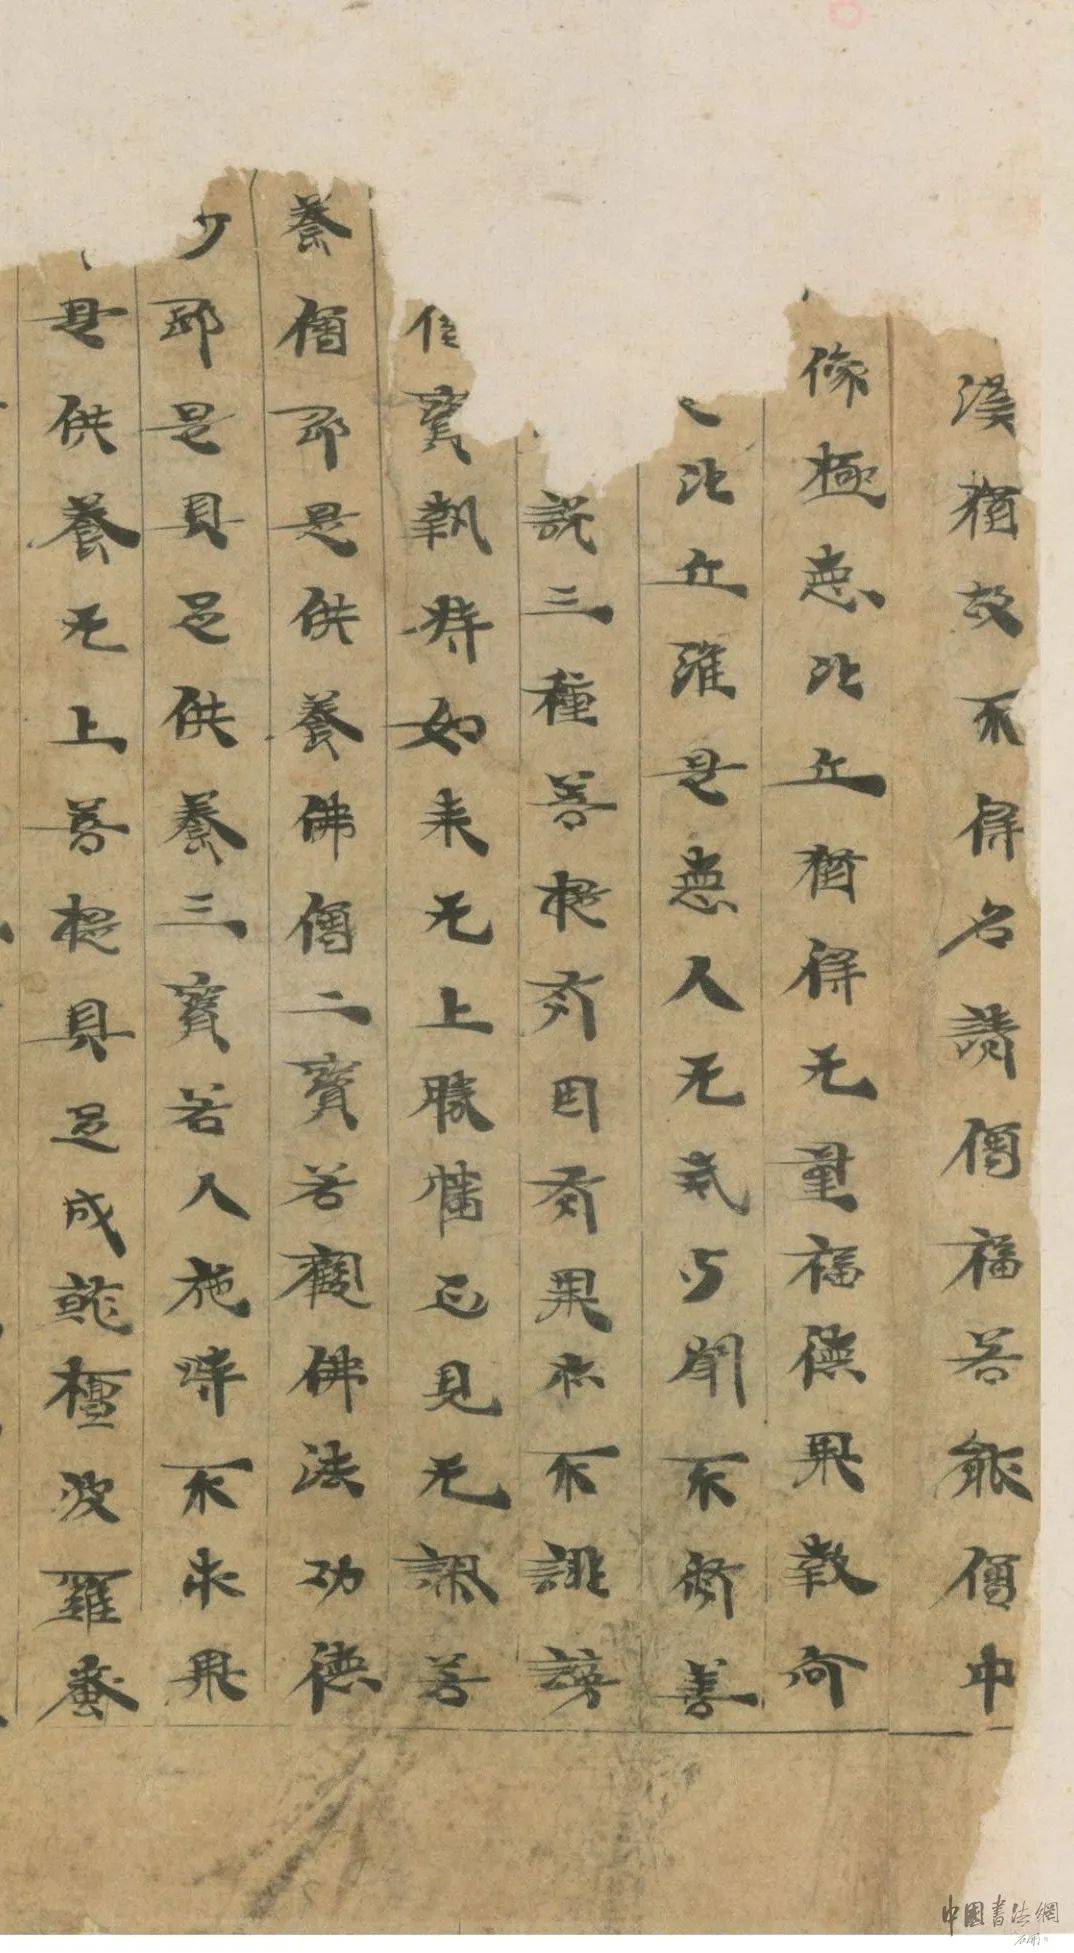 漢猶故不得名請僧福若能僧中
像極惡比丘猶得无量福德果報何
比丘雖是惡人无戒多聞不脩善
説三種菩提有因有果亦不誹謗
寶執持如來无上勝幡正見无謬若
養僧即是供養佛僧二寶若觀佛法功德
即是具足供養三寶若人施時不求果
是供養无上菩提具足成就檀波羅蜜
中國書法網